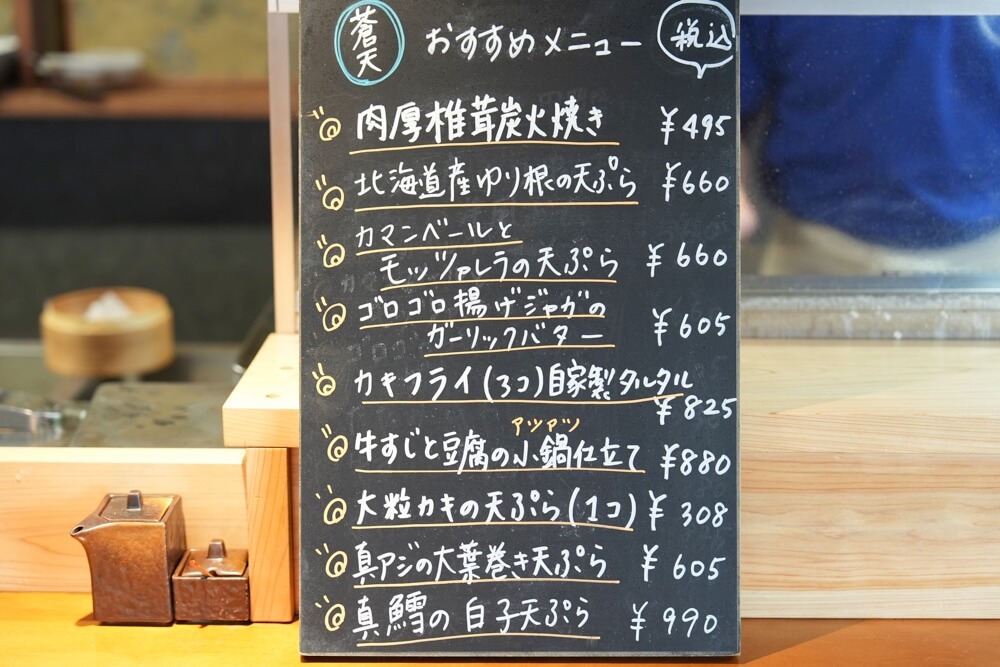 蒼天
おすすめメニュー
税込
肉厚椎茸炭火焼き ¥495
北海道産ゆり根の天ぷら ¥660
カマンベールと
モッツァレラの天ぷら ¥660
ゴロゴロ揚げジャガの
ガーリックバター ¥605
カキフライ(3コ)自家製タルタル
¥825
アツアツ
牛すじと豆腐の小鍋仕立て ¥880
大粒カキの天ぷら(1コ) ¥308
真アジの大葉巻き天ぷら ¥605
真鱈の白子天ぷら ¥990